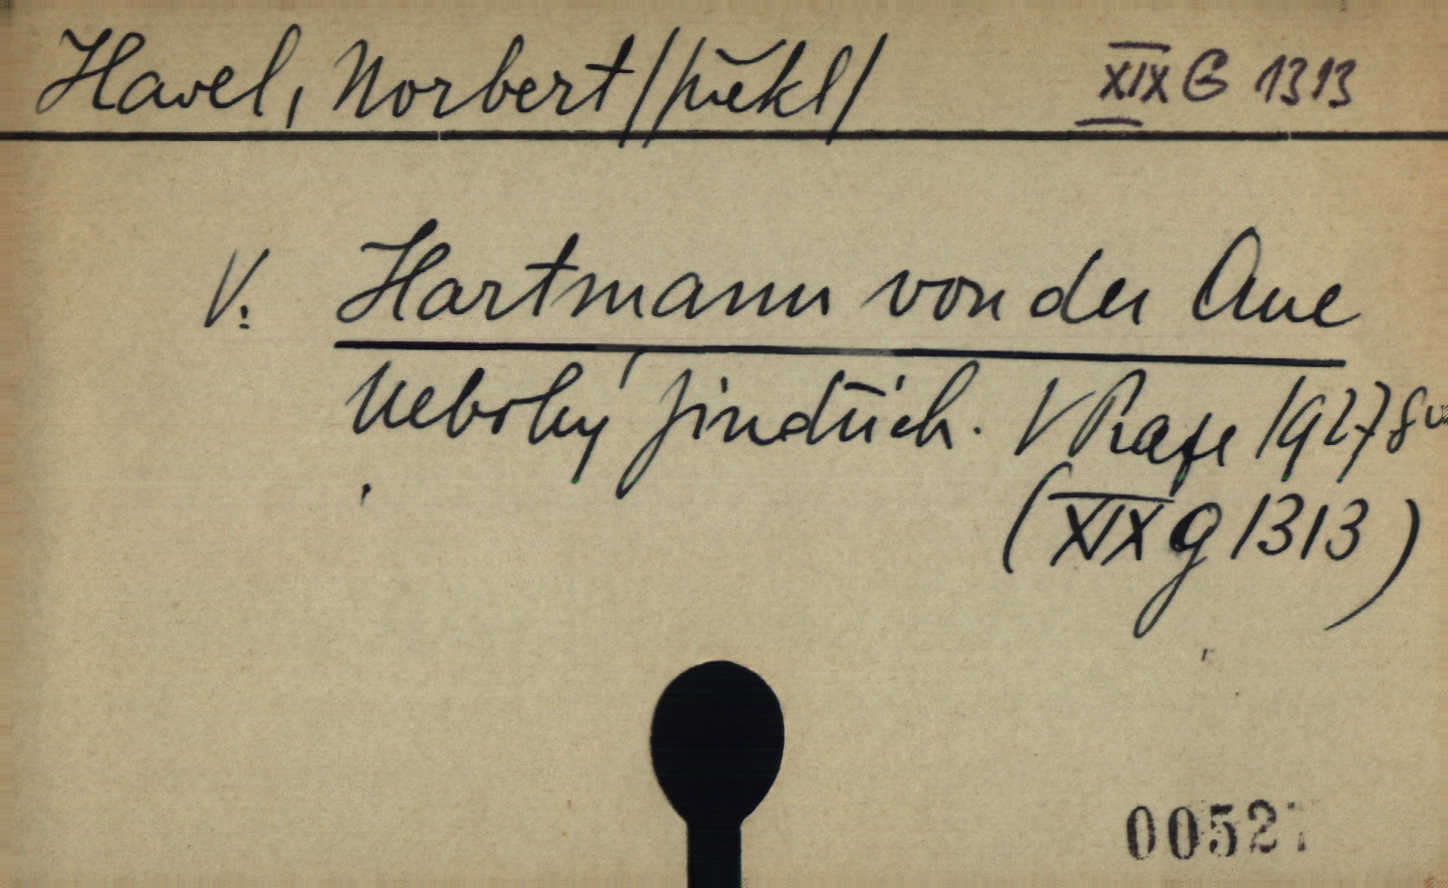 Havel, Norbert /překl/ XIX G 1313
V. Hartmann von der Aue
Nebohý Jindřich. V Praze 1927 8°
(XIX G 1313)
0052